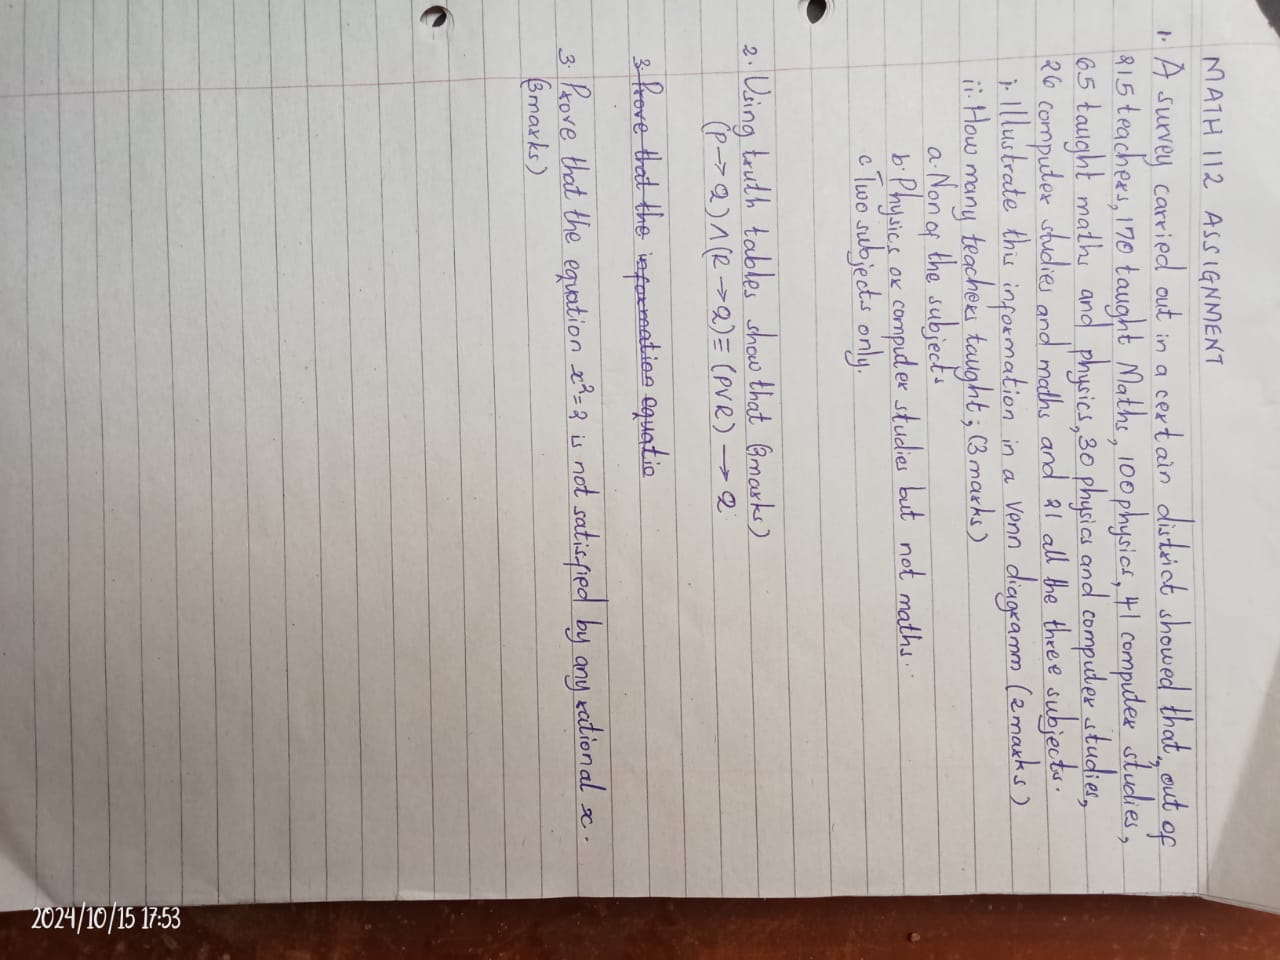 MATH 112 ASSIGNMENT
1. A survey carried out in a certain district showed that, out of
215 teachers, 170 taught Maths, 100 physics, 41 computer studies,
65 taught maths and physics, 30 physics and computer studies,
26 computer studies and maths and 21 all the three subjects.
i. Illustrate this information in a venn diagramm (2 marks)
ii. How many teachers taught; (3 marks)
a. Non of the subjects
b. Physics or computer studies but not maths.
c Two subjects only.
2. Using truth tables show that (3marks)
(P → Q) ∧ (R → Q) ≡ (P∨R) → Q
3. Prove that the information equatio
3. Prove that the equation x²=2 is not satisfied by any rational x.
(3marks)
2024/10/15 17:53